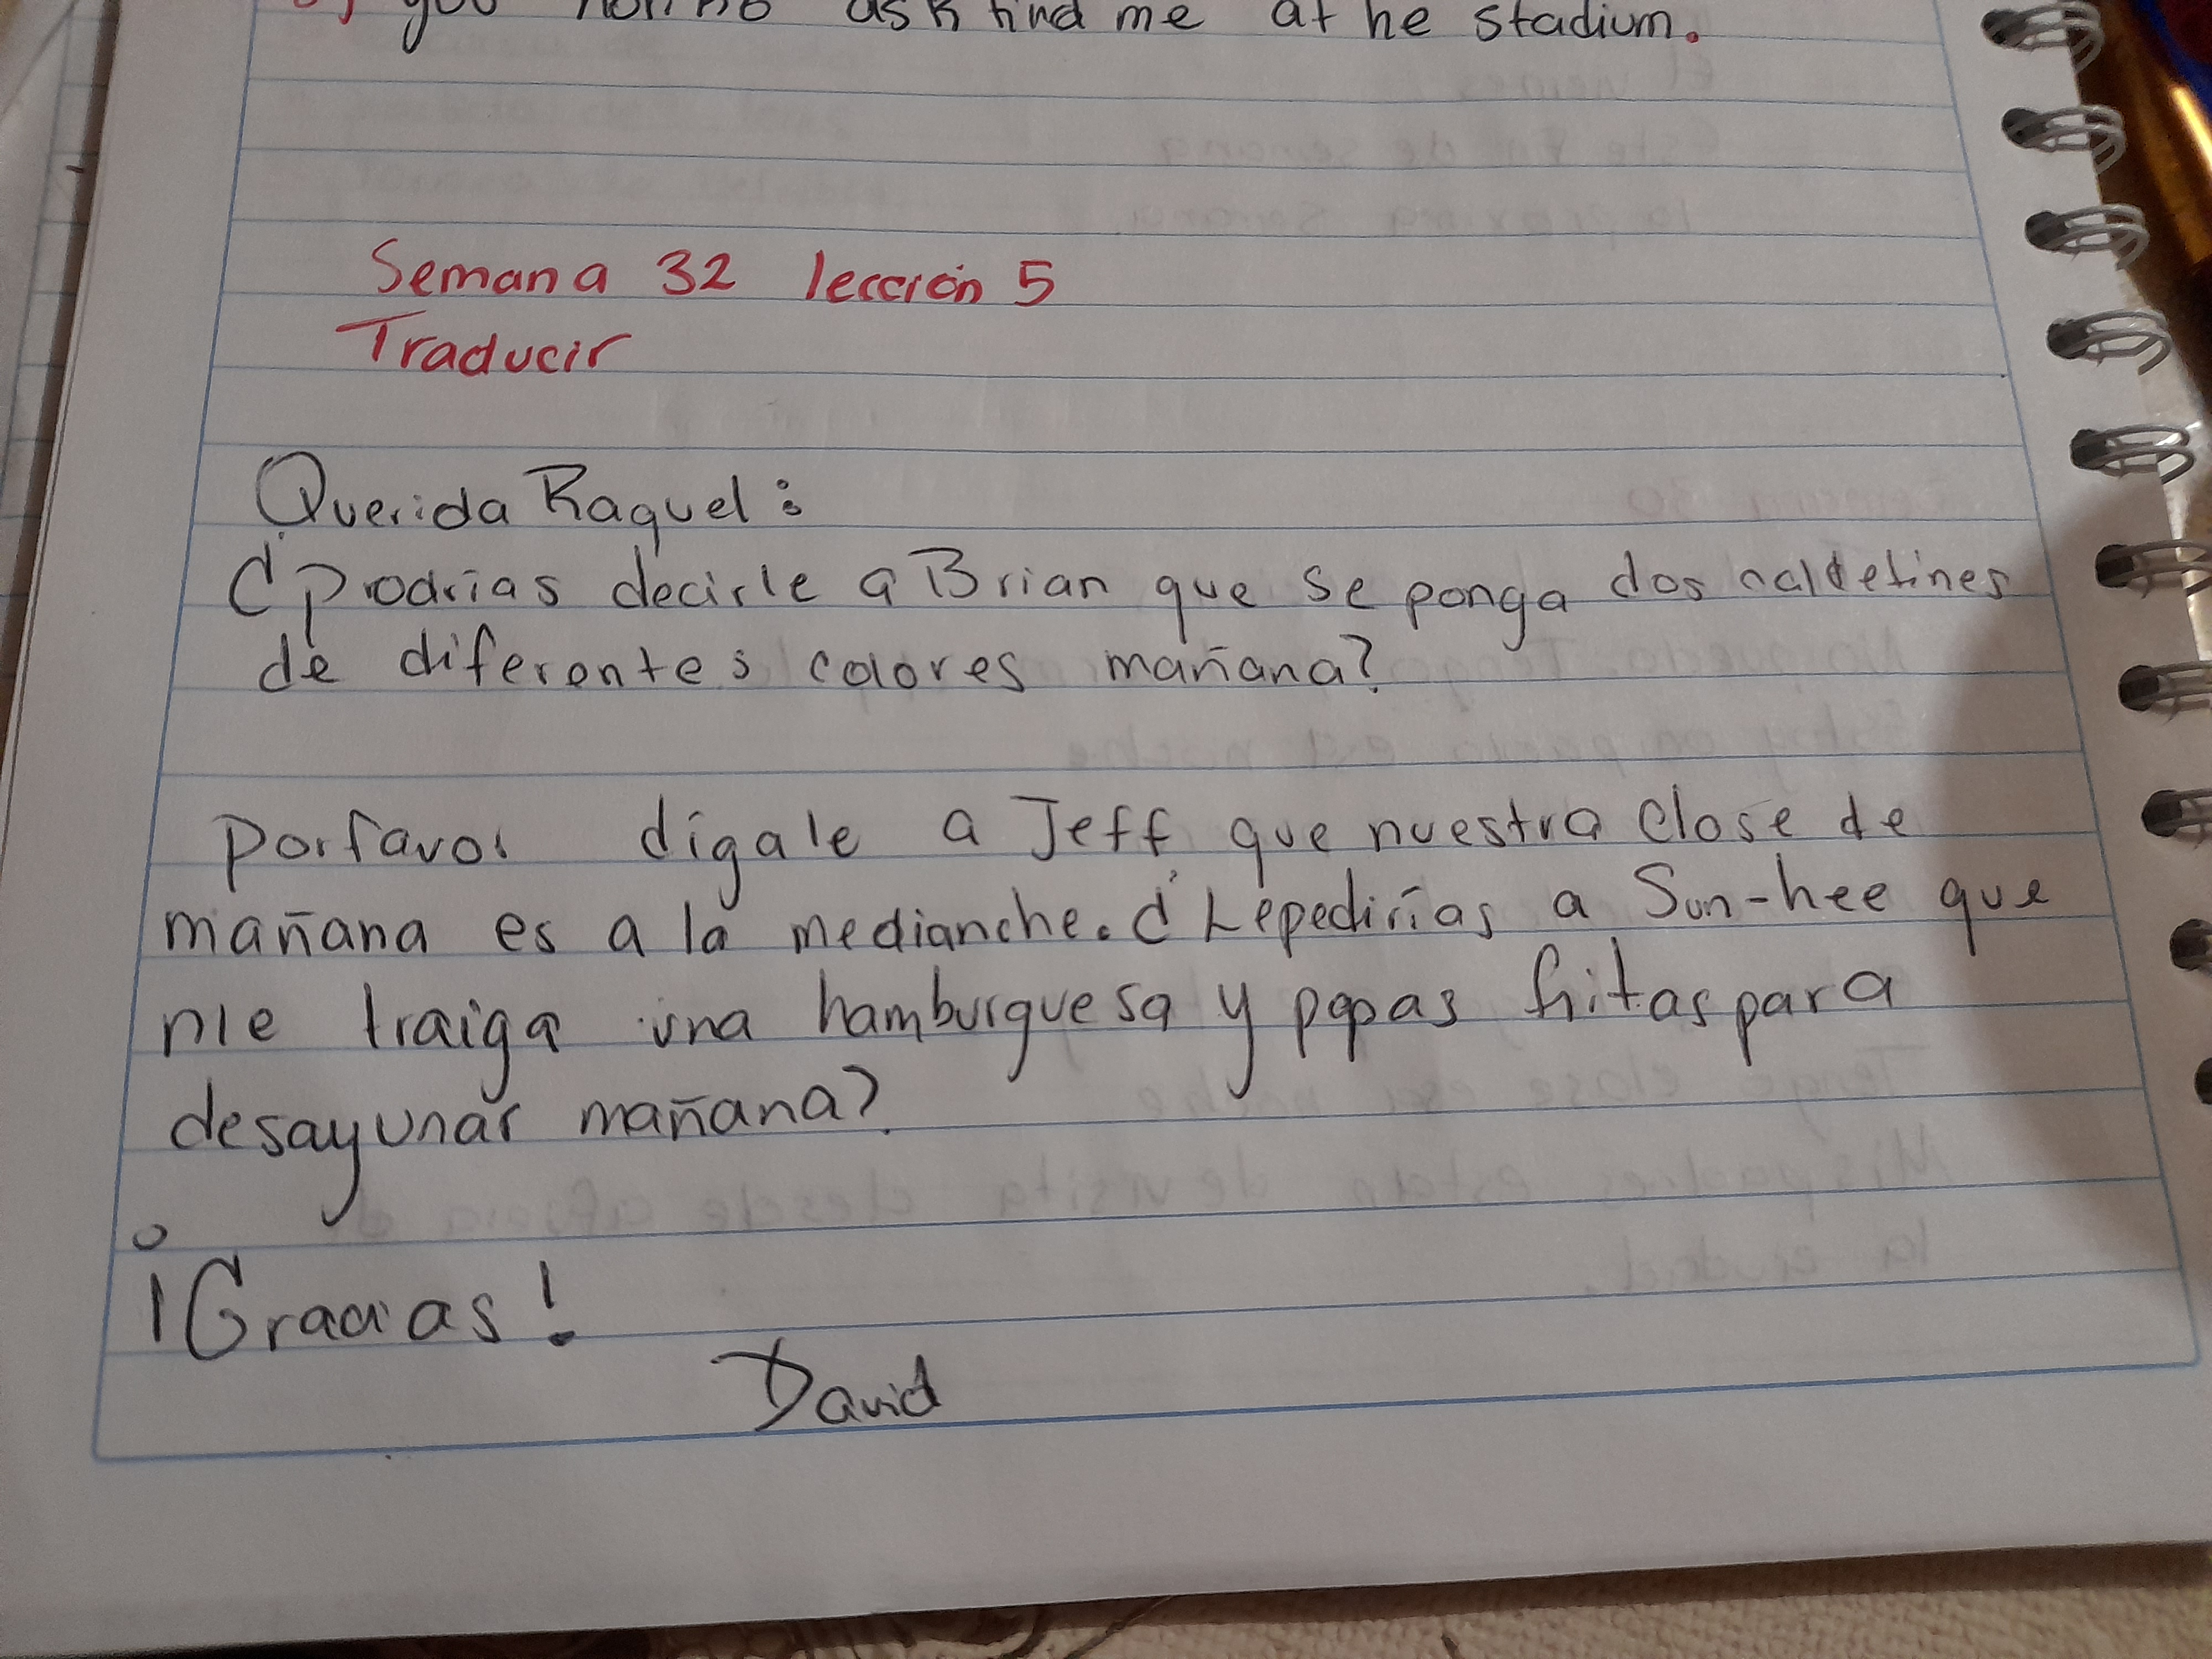 you ask find me at he stadium.
Semana 32 lección 5
Traducir
Querida Raquel:
¿Podrias decirle a Brian que se ponga dos caldetines
de diferentes colores mañana?
Porfavor dígale a Jeff que nuestra clase de
mañana es a la medianche. ¿Lepedirías a Sun-hee que
me traiga una hamburguesa y papas fritas para
desayunar mañana?
¡Gracias!
David